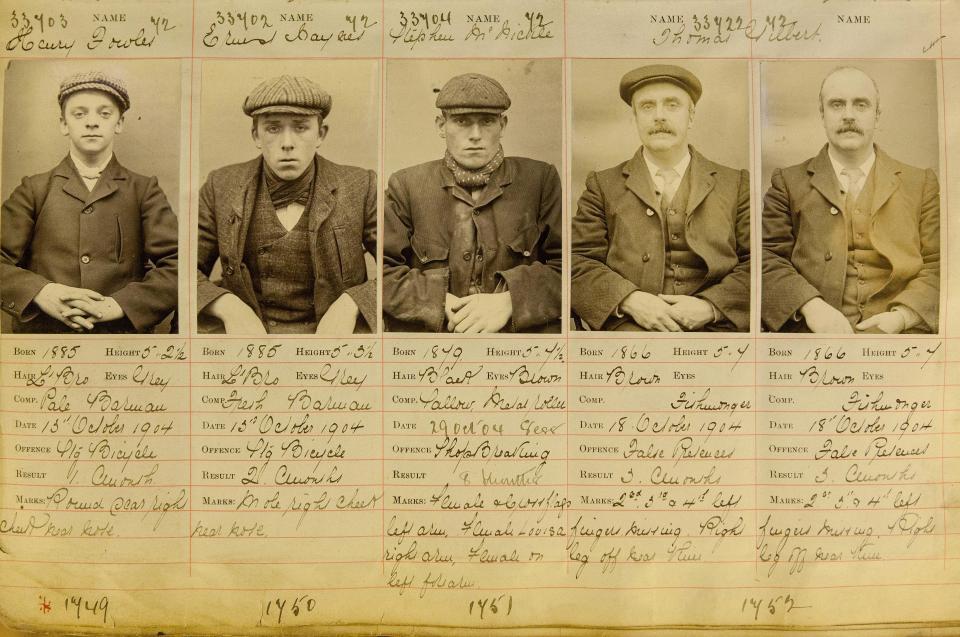 33703 NAME 72
Henry Fowles
33702 NAME 72
Ernest Haynes
33704 NAME 72
Stephen McNickle
NAME 33722 72 NAME
Thomas Gilbert.
BORN 1885 HEIGHT 5-2½
HAIR L'Bro EYES Grey
COMP. Pale Barman
DATE 15th October 1904
OFFENCE Stg Bicycle
RESULT 1. Month
MARKS: Round scar right
cheek near nose.
BORN 1885 HEIGHT 5-3½
HAIR L'Bro EYES Grey
COMP. Fresh Barman
DATE 15th October 1904
OFFENCE Stg Bicycle
RESULT 2. Months
MARKS: Mole right cheek
near nose.
BORN 1879 HEIGHT 5-7½
HAIR Black EYES Brown
COMP. Sallow, Metal roller
DATE 29 Oct 04
OFFENCE Shop Breaking
RESULT 8 Months
MARKS: Female & Cross flags
left arm, Female Louisa
right arm, Female on
left forearm.
BORN 1866 HEIGHT 5-7
HAIR Brown EYES
COMP. Fishmonger
DATE 18 October 1904
OFFENCE False Pretences
RESULT 3. Months
MARKS: 2nd 3rd & 4th left
fingers missing. Right
leg off near
BORN 1866 HEIGHT 5-7
HAIR Brown EYES
COMP. Fishmonger
DATE 18th October 1904
OFFENCE False Pretences
RESULT 3. Months
MARKS: 2nd 3rd & 4th left
fingers missing. Right
leg off near
1749
1750
1751
1752